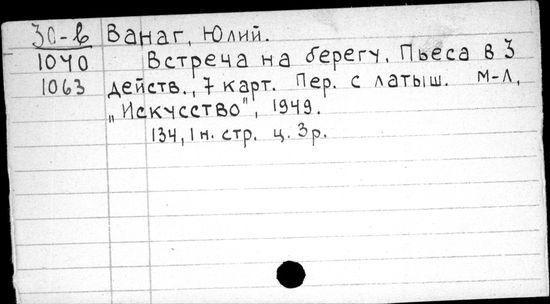 30-в Ванаг, Юлий.
1040 Встреча на берегу. Пьеса в 3
1063 действ., 7 карт. Пер. с латыш. М-Л,
„Искусство", 1949.
134, 1 н. стр. ц. 3 р.